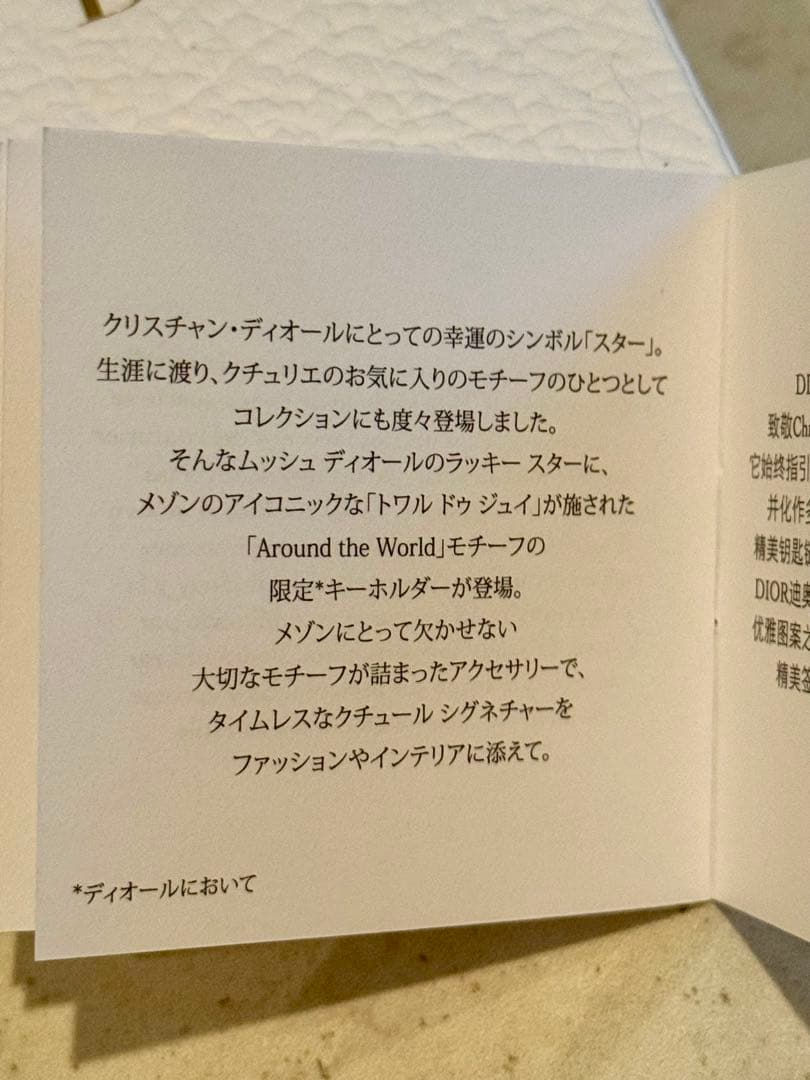 クリスチャン・ディオールにとっての幸運のシンボル「スター」。
生涯に渡り、クチュリエのお気に入りのモチーフのひとつとして
コレクションにも度々登場しました。
そんなムッシュ ディオールのラッキー スターに、
メゾンのアイコニックな「トワル ドゥ ジュイ」が施された
「Around the World」モチーフの
限定*キーホルダーが登場。
メゾンにとって欠かせない
大切なモチーフが詰まったアクセサリーで、
タイムレスなクチュール シグネチャーを
ファッションやインテリアに添えて。
*ディオールにおいて
致敬
它始终指引
并化作
精美钥匙
DIOR迪奥
优雅图案之
精美